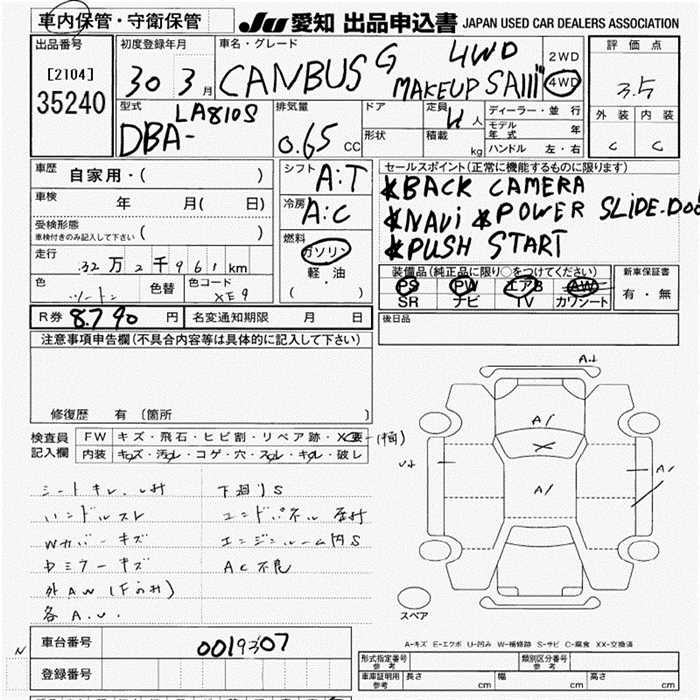 車内保管・守衛保管
JU 愛知 出品申込書 JAPAN USED CAR DEALERS ASSOCIATION
出品番号
[2104]
35240
初度登録年月
30 3月
車名・グレード
CANBUS G 4WD
MAKEUP SAIII
2WD
4WD
評価点
3.5
外装 内装
C C
型式
DBA-LA810S
排気量
0.65 CC
ドア
形状
定員 4人
積載 kg
ディーラー・並行
モデル年式 年
ハンドル 左・右
車歴 自家用・( )
車検 年 月( 日)
受検形態
車検付きのみ記入して下さい ( )
走行 万2千961km
色 ツートン 色替 色コード XE9
シフト A:T
冷房 A:C
燃料
ガソリン
軽・油
( )
セールスポイント(正常に機能するものに限ります)
*BACK CAMERA
*NAVi *POWER SLIDE.DOO
*PUSH START
装備品(純正品に限り○をつけてください)
PS PW エアB AW
SR ナビ TV カワシート
新車保証書
有・無
R券 8.790円 名変通知期限 月 日
後日品
注意事項申告欄(不具合内容等は具体的に記入して下さい)
修復歴 有 (箇所 )
検査員記入欄
FW キズ・飛石・ヒビ割・リペア跡・X要
内装 キズ・汚れ・コゲ・穴・スレ・キレ・破レ
シートキレ、
ハンドルスレ
Wカバーキズ
Dミラーキズ
外AW(Fのみ)
各A.U.
下廻りS
エンドパネル
エンジンルーム内S
AC不良
A↓
A/
X
A/
U↓
A/
スペア
A-キズ E-エクボ U-凹み W-補修跡 S-サビ C-腐食 XX-交換済
N
車台番号 0019307
登録番号
形式指定番号 参考
類別区分番号 参考
車庫証明用 参考 長さ cm 幅 cm 高さ cm